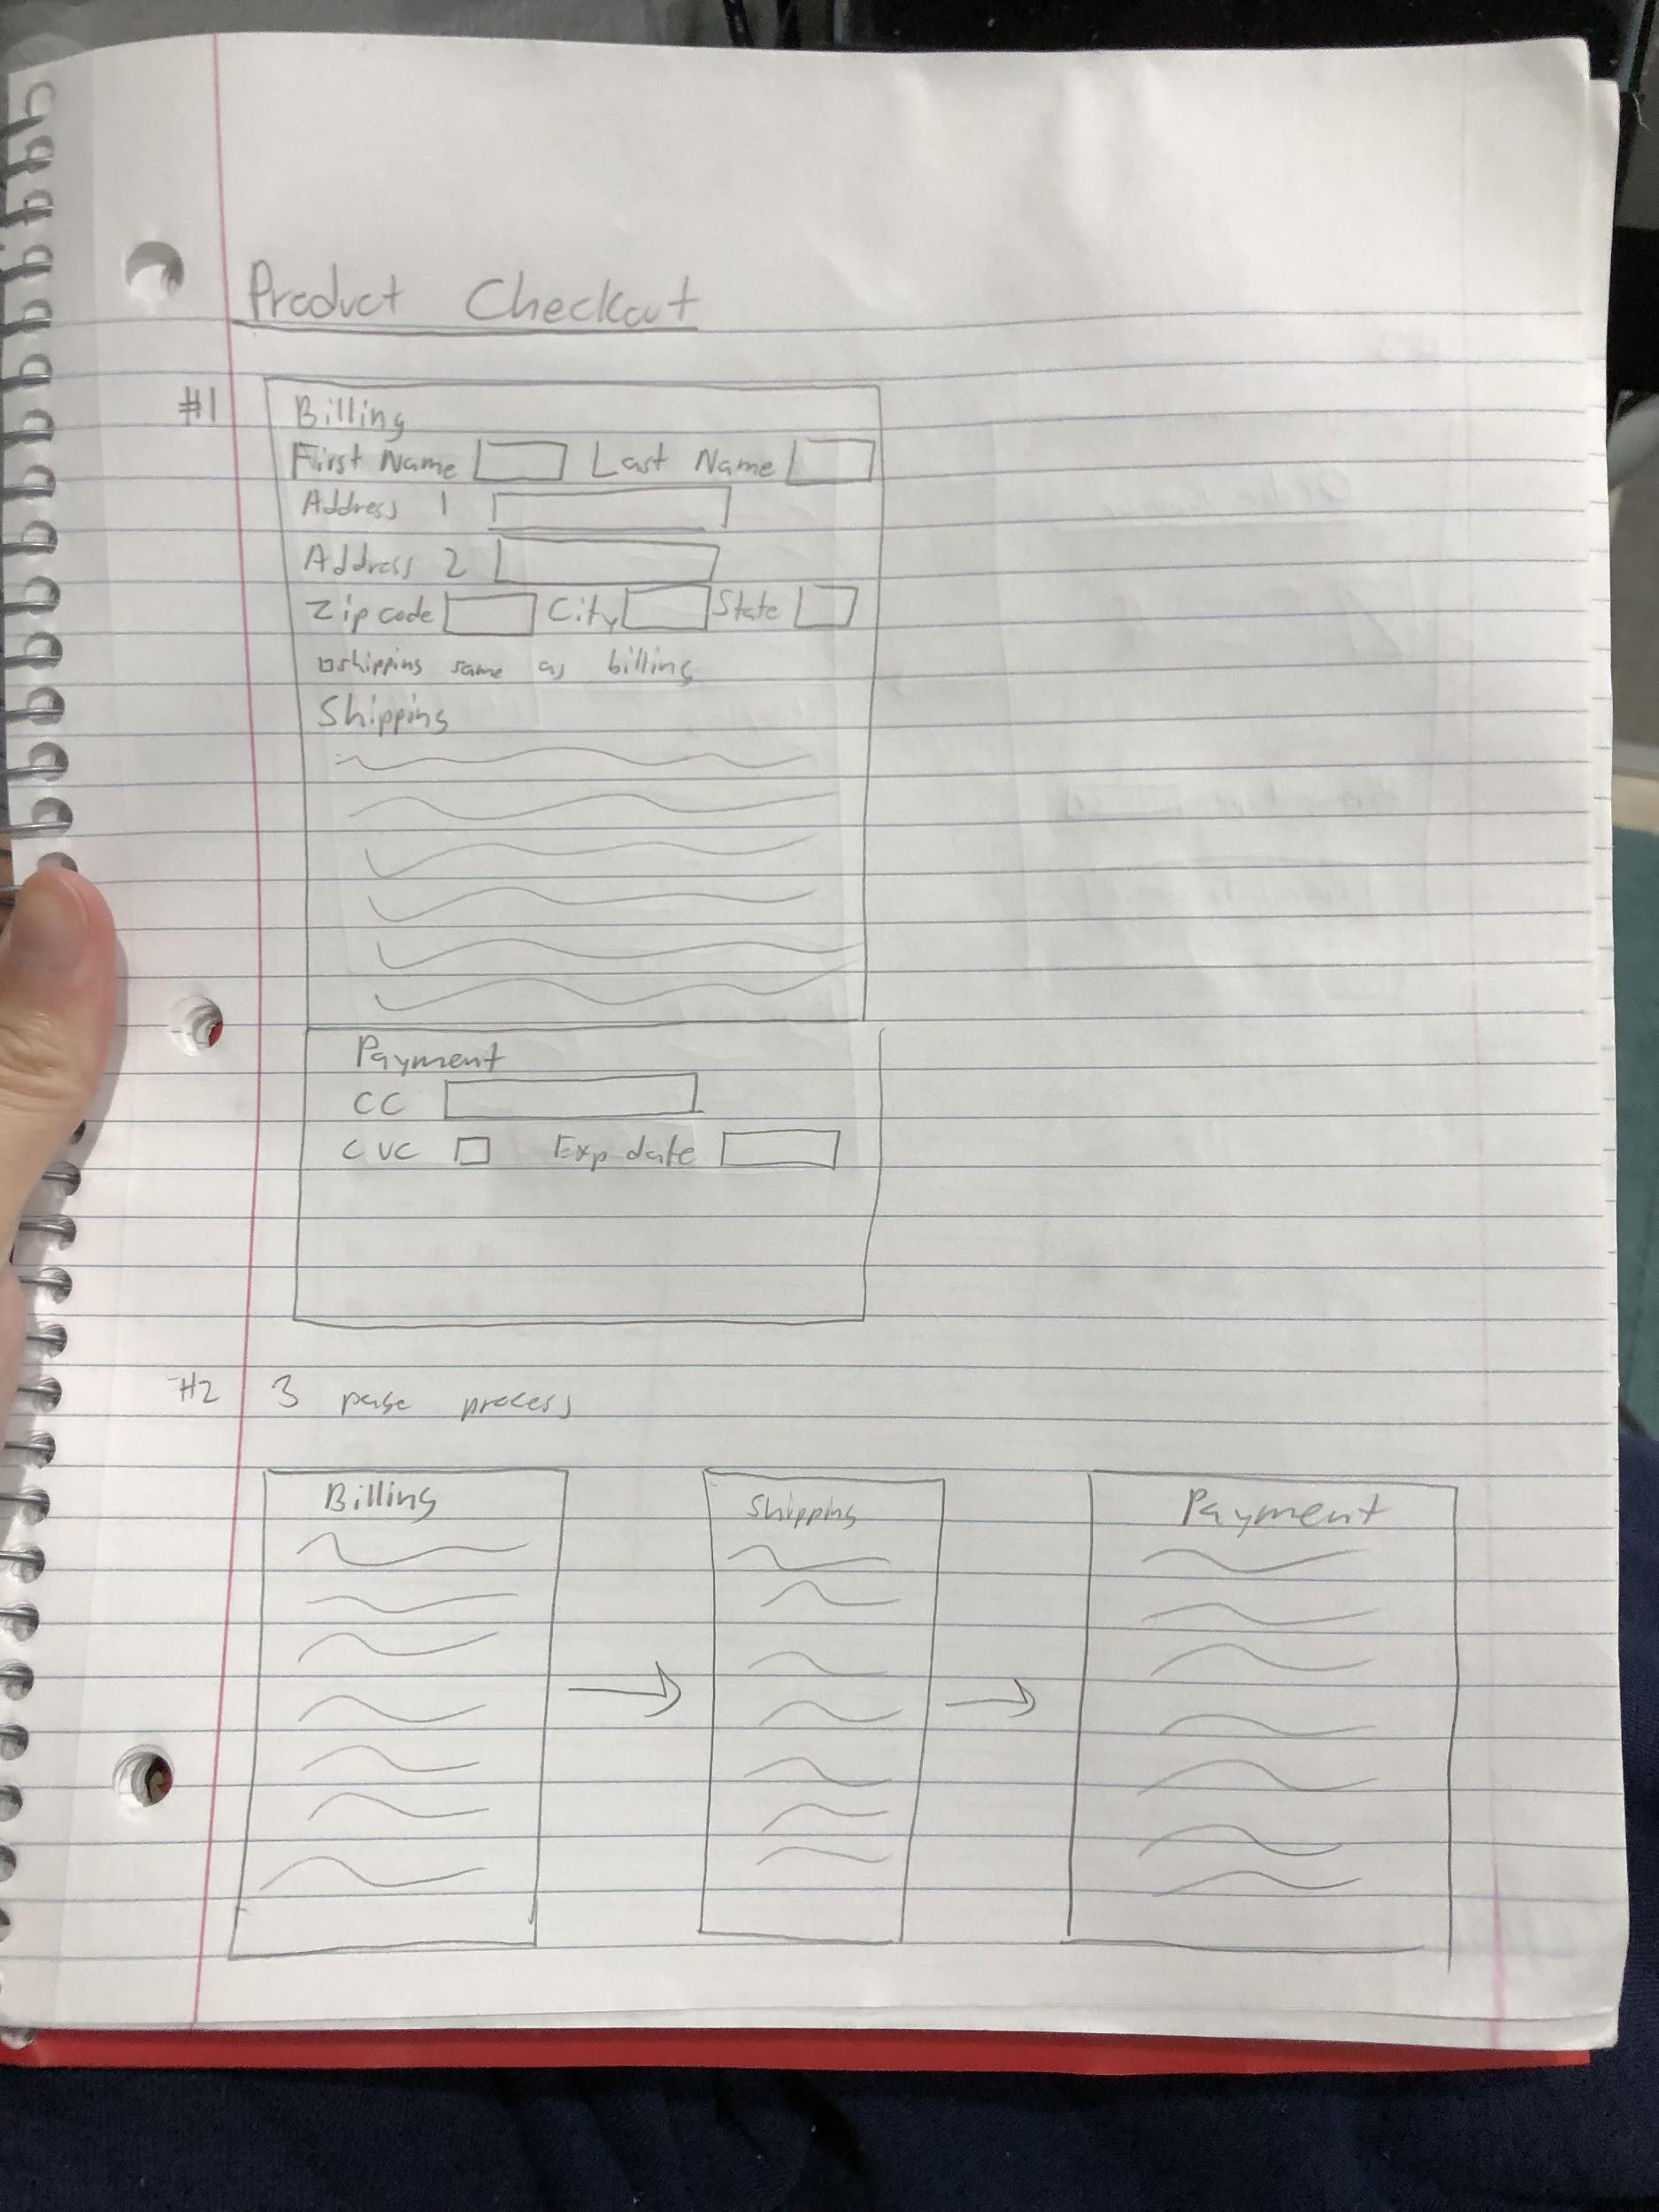 Product Checkout
#1
Billing
First Name Last Name
Address 1
Address 2
Zip code City State
shipping same as billing
Shipping
Payment
CC
CVC Exp date
#2 3 page process
Billing Shipping Payment